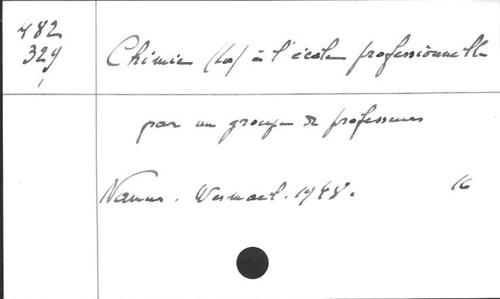 482
329
Chimie (la) à l'école professionnelle
par un groupe de professeurs
Namur. Wesmael. 1948. 16